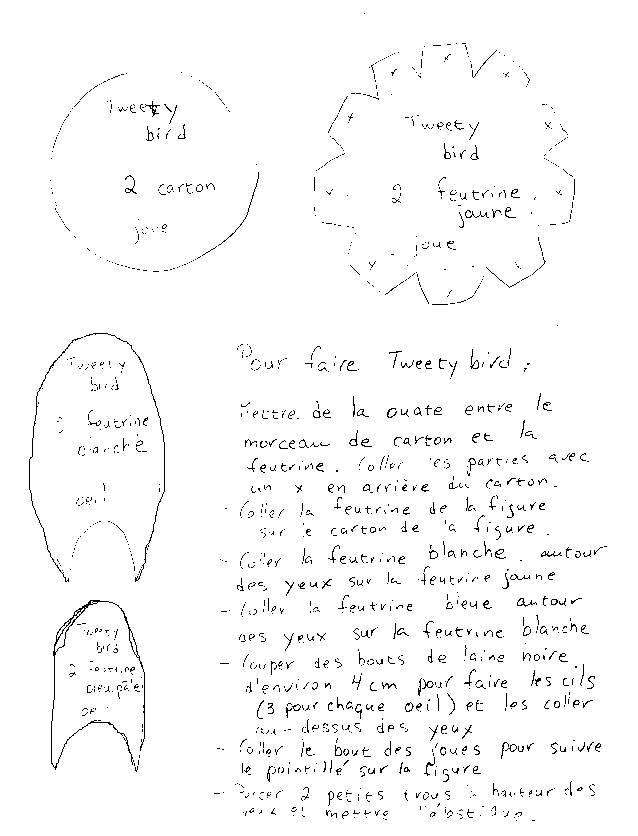 Tweety
bird
2 carton
joue
Tweety
bird
2 feutrine
jaune
joue
Tweety
bird
feutrine
blanche
oeil
Tweety
bird
2 feutrine
bleu pâle
oeil
Pour faire Tweety bird :
Mettre de la ouate entre le
morceau de carton et la
feutrine. Coller les parties avec
un x en arrière du carton.
- Coller la feutrine de la figure
sur le carton de la figure.
- Coller la feutrine blanche autour
des yeux sur la feutrine jaune
- Coller la feutrine bleue autour
des yeux sur la feutrine blanche
- Couper des bouts de laine noire
d'environ 4 cm pour faire les cils
(3 pour chaque oeil) et les coller
au-dessus des yeux
- Coller le bout des joues pour suivre
le pointillé sur la figure
- Percer 2 petits trous à hauteur des
yeux et mettre l'élastique.